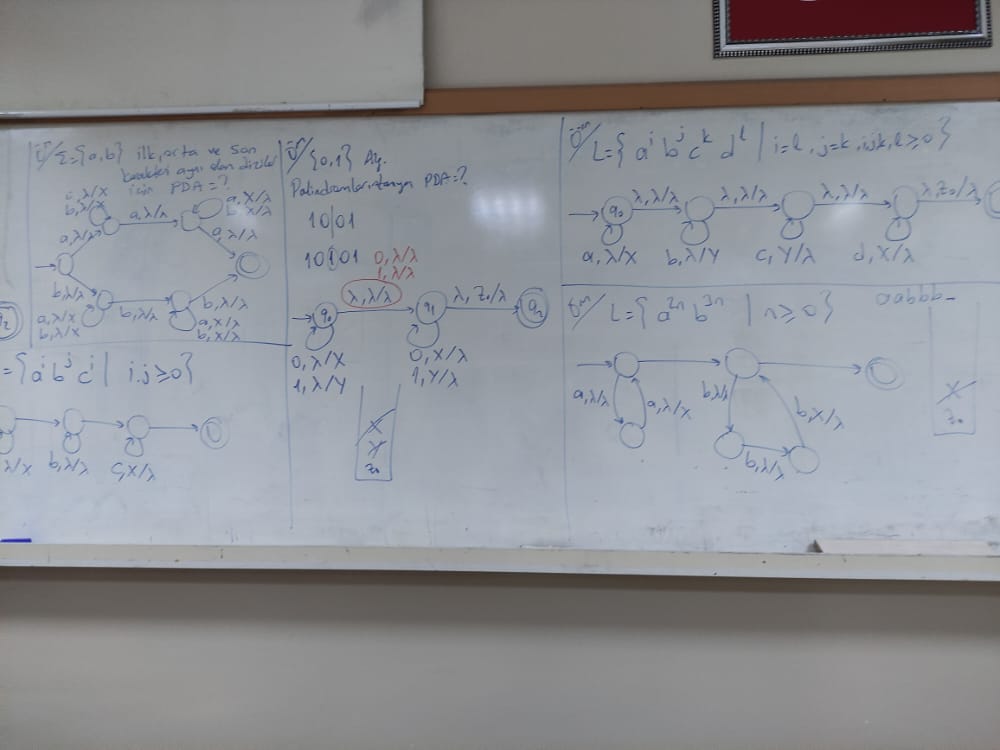 Ör/ Σ={a,b} ilk, orta ve son
karakteri aynı olan diziler
için PDA=?
a,λ/X
b,λ/X
a,λ/λ
a,X/λ
b,X/λ
a,λ/λ
a,λ/λ
b,λ/λ
a,λ/X
b,λ/X
b,λ/λ
b,λ/λ
a,X/λ
b,X/λ
q2
={a^i b^j c^i | i,j≥0}
λ/X
b,λ/λ
c,X/λ
Ör/ {0,1} Alf.
Palindromları tanıyan PDA=?
10|01
10101
0,λ/λ
1,λ/λ
λ,λ/λ
λ,z₀/λ
q0
q1
q2
0,λ/X
1,λ/Y
0,X/λ
1,Y/λ
X
Y
z₀
Ör/ L={a^i b^j c^k d^l | i=l, j=k, i,j,k,l≥0}
λ,λ/λ
λ,λ/λ
λ,λ/λ
λ,z₀/λ
q0
a,λ/X
b,λ/Y
c,Y/λ
d,X/λ
Ör/ L={a^2n b^3n | n≥0}
aabbb
a,λ/λ
a,λ/X
b,λ/λ
b,X/λ
b,λ/λ
X
z₀